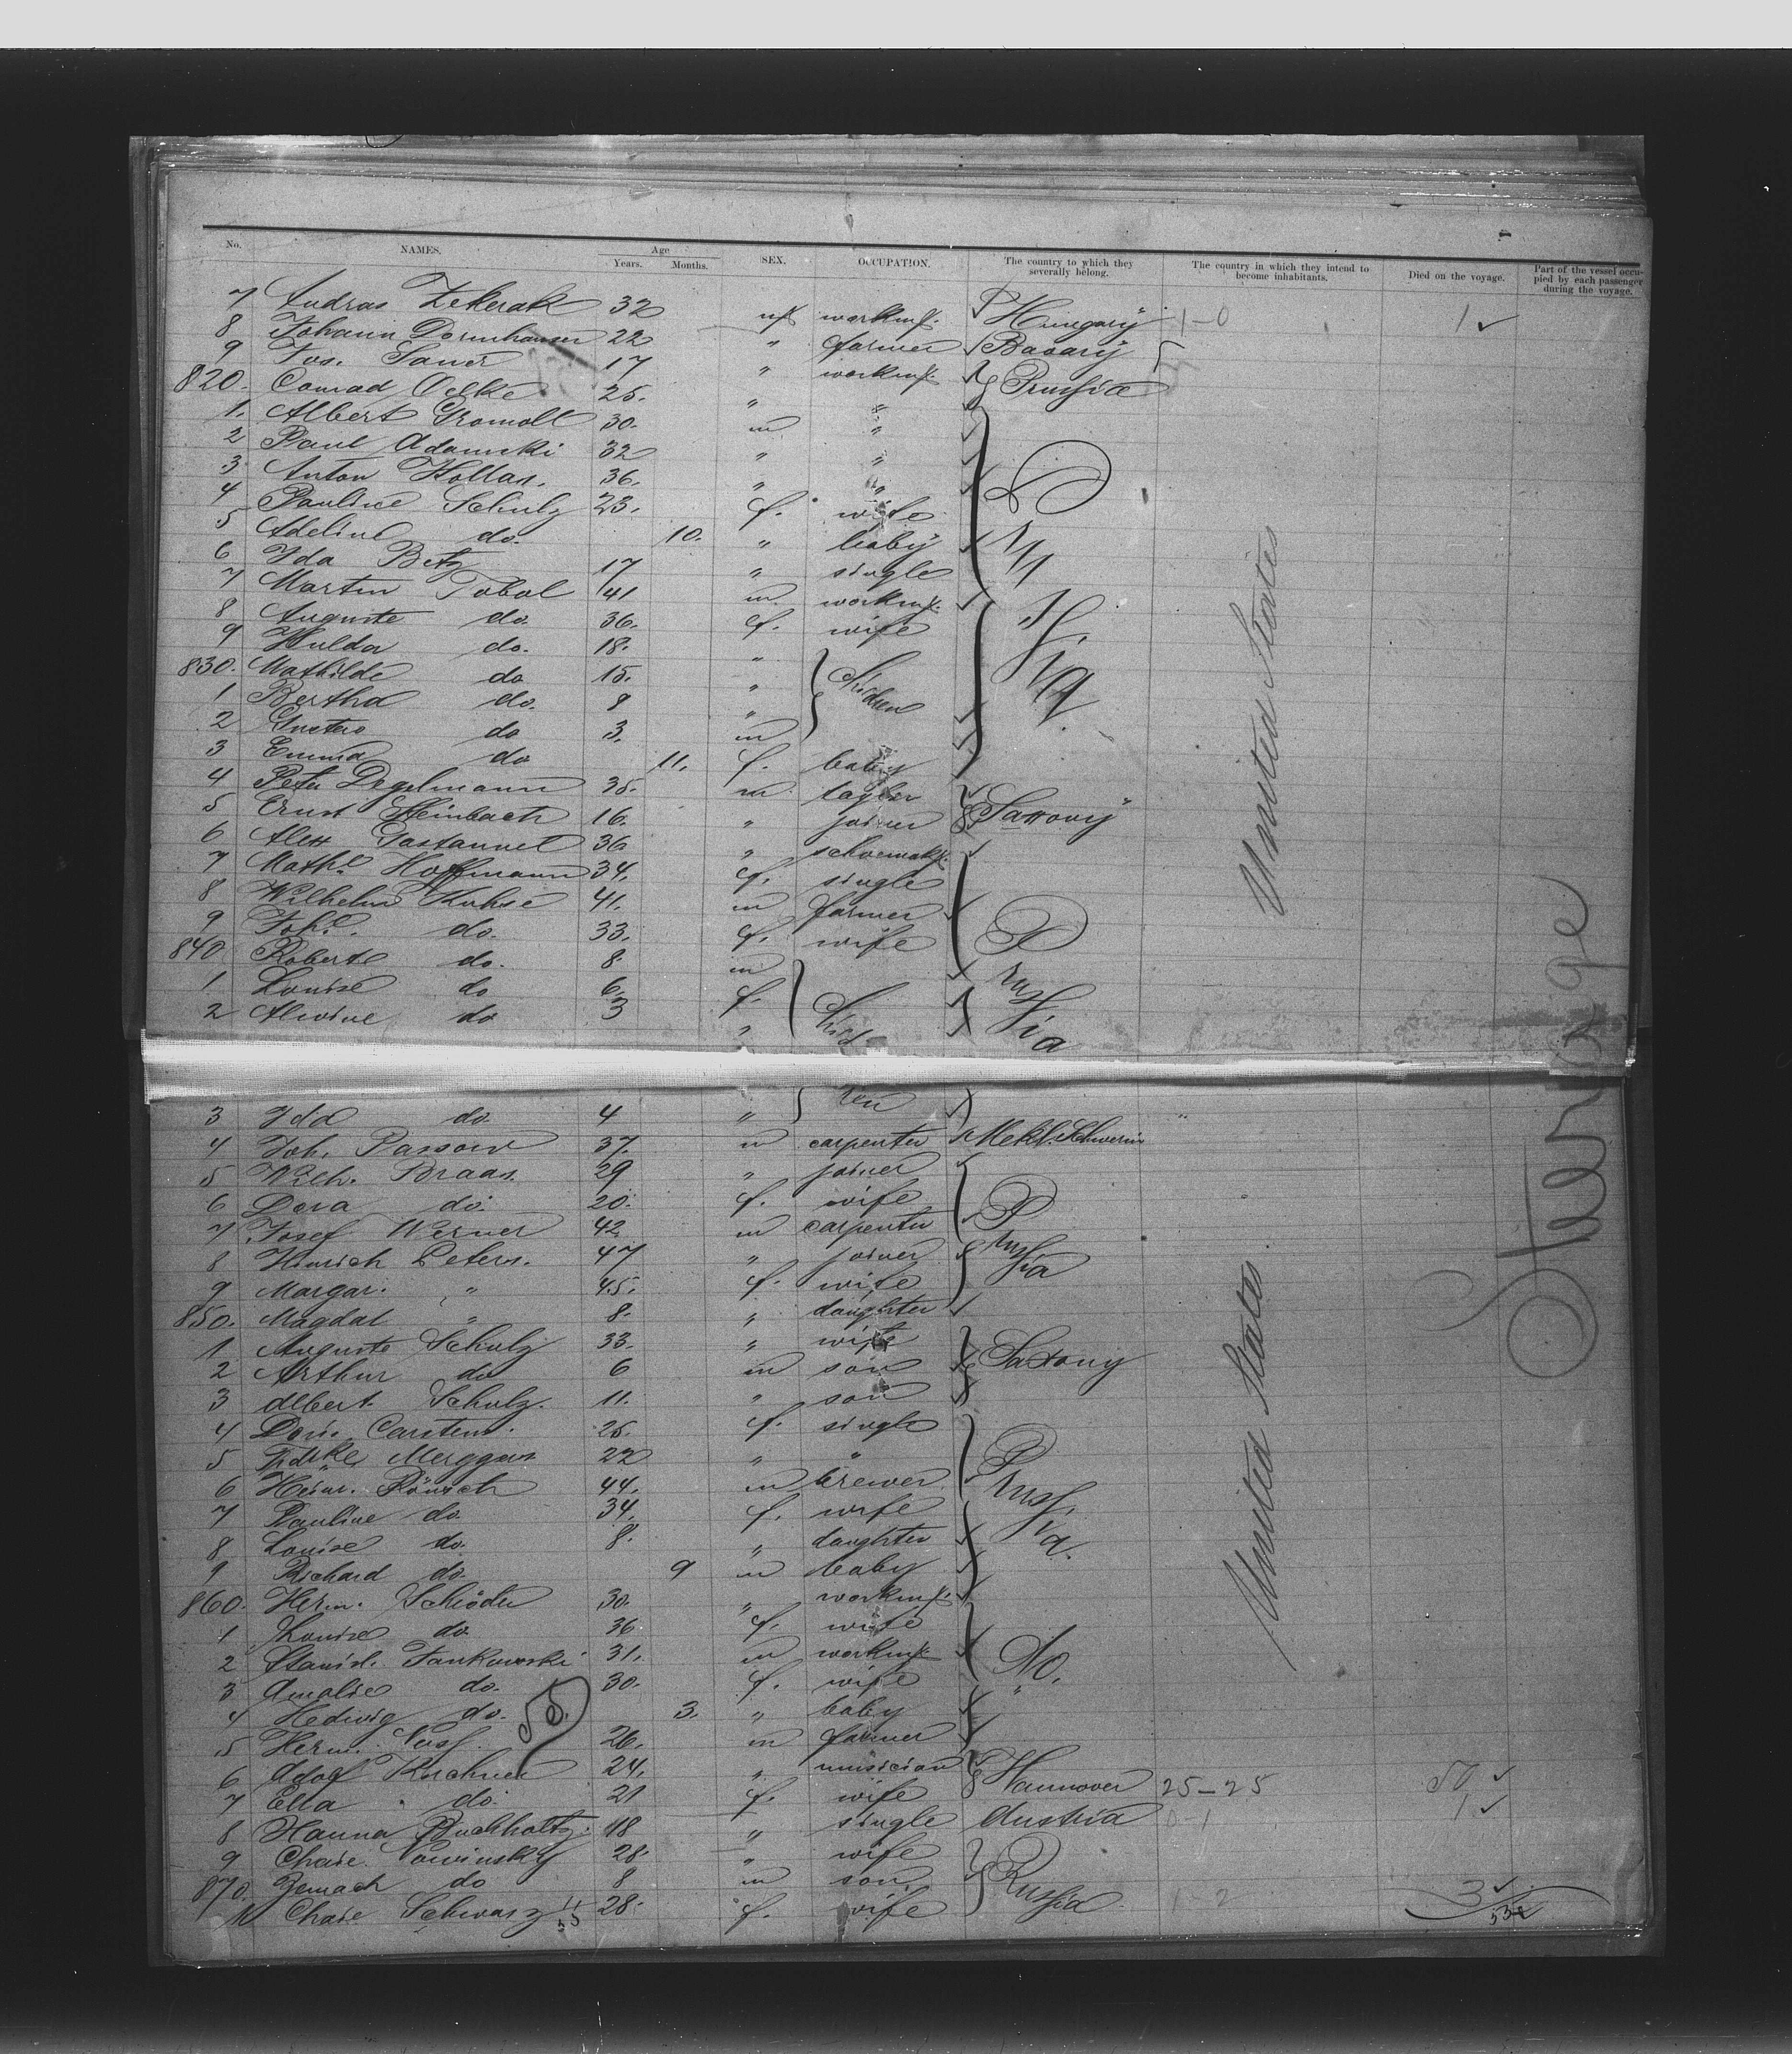 No. NAMES. Age Years. Months. SEX. OCCUPATION. The country to which they severally belong. The country in which they intend to become inhabitants. Died on the voyage. Part of the vessel occupied by each passenger during the voyage.
7 Andras Zekerak 32 m workmn. Hungary 1-0 1
8 Johann Dornhauser 22 " farmer Bavary
9 Jos. Sauer 17 " workmn. Prussia
820. Conrad Oelke 25. " "
1. Albert Gromoll 30. m "
2 Paul Adamski 32 " "
3 Anton Kollas. 36. " "
4 Pauline Schulz 23. f. wife
5 Adeline do. 10. " baby
6 Ida Betz 17 " single
7 Martin Tobol 41 m workmn.
8 Auguste do. 36. f. wife
9 Hulda do. 18. "
830. Mathilde do 15. " Children
1 Bertha do. 8 "
2 Gustav do 3. m
3 Emma do 11. f. baby
4 Peter Degelmann 35. m taylor
5 Ernst Steinbach 16. " joiner Saxony
6 Alex 36 " schoemak.
7 Mathe. Hoffmann 34. f. single
8 Wilhelm Kuhse 41. m farmer
9 Joh. do. 33. f. wife Prussia
840 Robert do. 8 m
1 Louise do 6. f.
2 Alwine do 3 " Child
3 Ida do. 4 " ren
4 Joh. Passow 37. m carpenter Mekl. Schwerin
5 Wilh. Braas. 29 " joiner
6 Dora do. 20. f. wife
7 Josef Werner 42 m carpenter Prussia
8 Hinrich Peters. 47 " joiner
9 Margar. " 45. f. wife
850. Magdal " 8. " daughter
1 Auguste Schulz 33. " wife
2 Arthur do 6 m son Saxony
3 Albert Schulz. 11. " son
4 Doris Carstens. 25. f. single
5 22 " "
6 Heinr. Rönsch 44. m brewer Prussia
7 Pauline do. 34. f. wife
8 Louise do. 8. " daughter
9 Richard do. 9 m baby
860. Herm. Schröder 30. " workmn.
1 Louise do. 36 f. wife
2 Stanisl. Jankowski 31. m workmn. Do.
3 Amalie do. 30. f. wife "
4 Hedwig do. 3. " baby
5 Herm. 26. m farmer
6 Adolf Kirchner 24. " musician
7 Ella do. 21 f. wife Hannover 25-25 50
8 Hanna Buchholtz. 18 " single Austria 0-1 1
9 Chaie Nowinsky 28. " wife
870. Zemach do 8 m son Russia
1 Chaie Schwarz 28. f. wife 1 2 3
United States
United States
Sterage